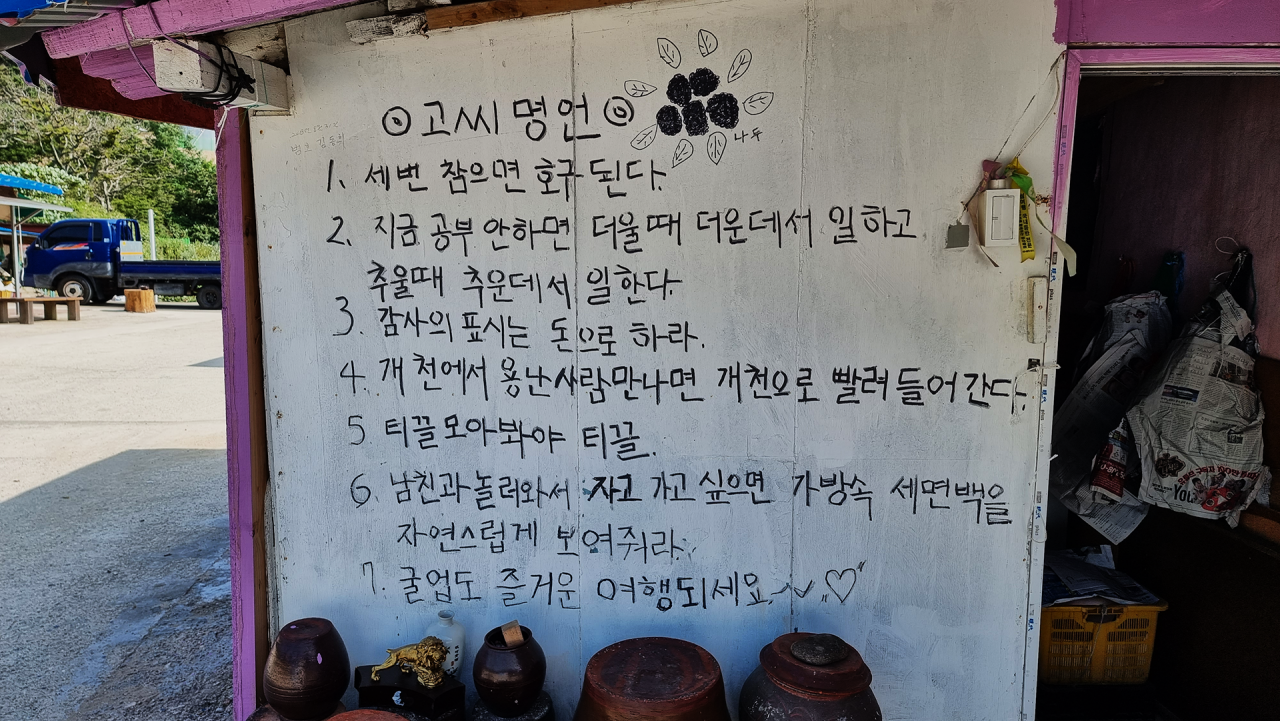 ⊙고씨명언⊙
나두
1. 세번 참으면 호구된다.
2. 지금 공부 안하면 더울때 더운데서 일하고
추울때 추운데서 일한다.
3. 감사의 표시는 돈으로 하라.
4. 개천에서 용난사람만나면 개천으로 빨려들어간다.
5 티끌모아봐야 티끌.
6. 남친과놀러와서 자고 가고싶으면 가방속 세면백을
자연스럽게 보여줘라.
7. 굴업도 즐거운 여행되세요~ ♡